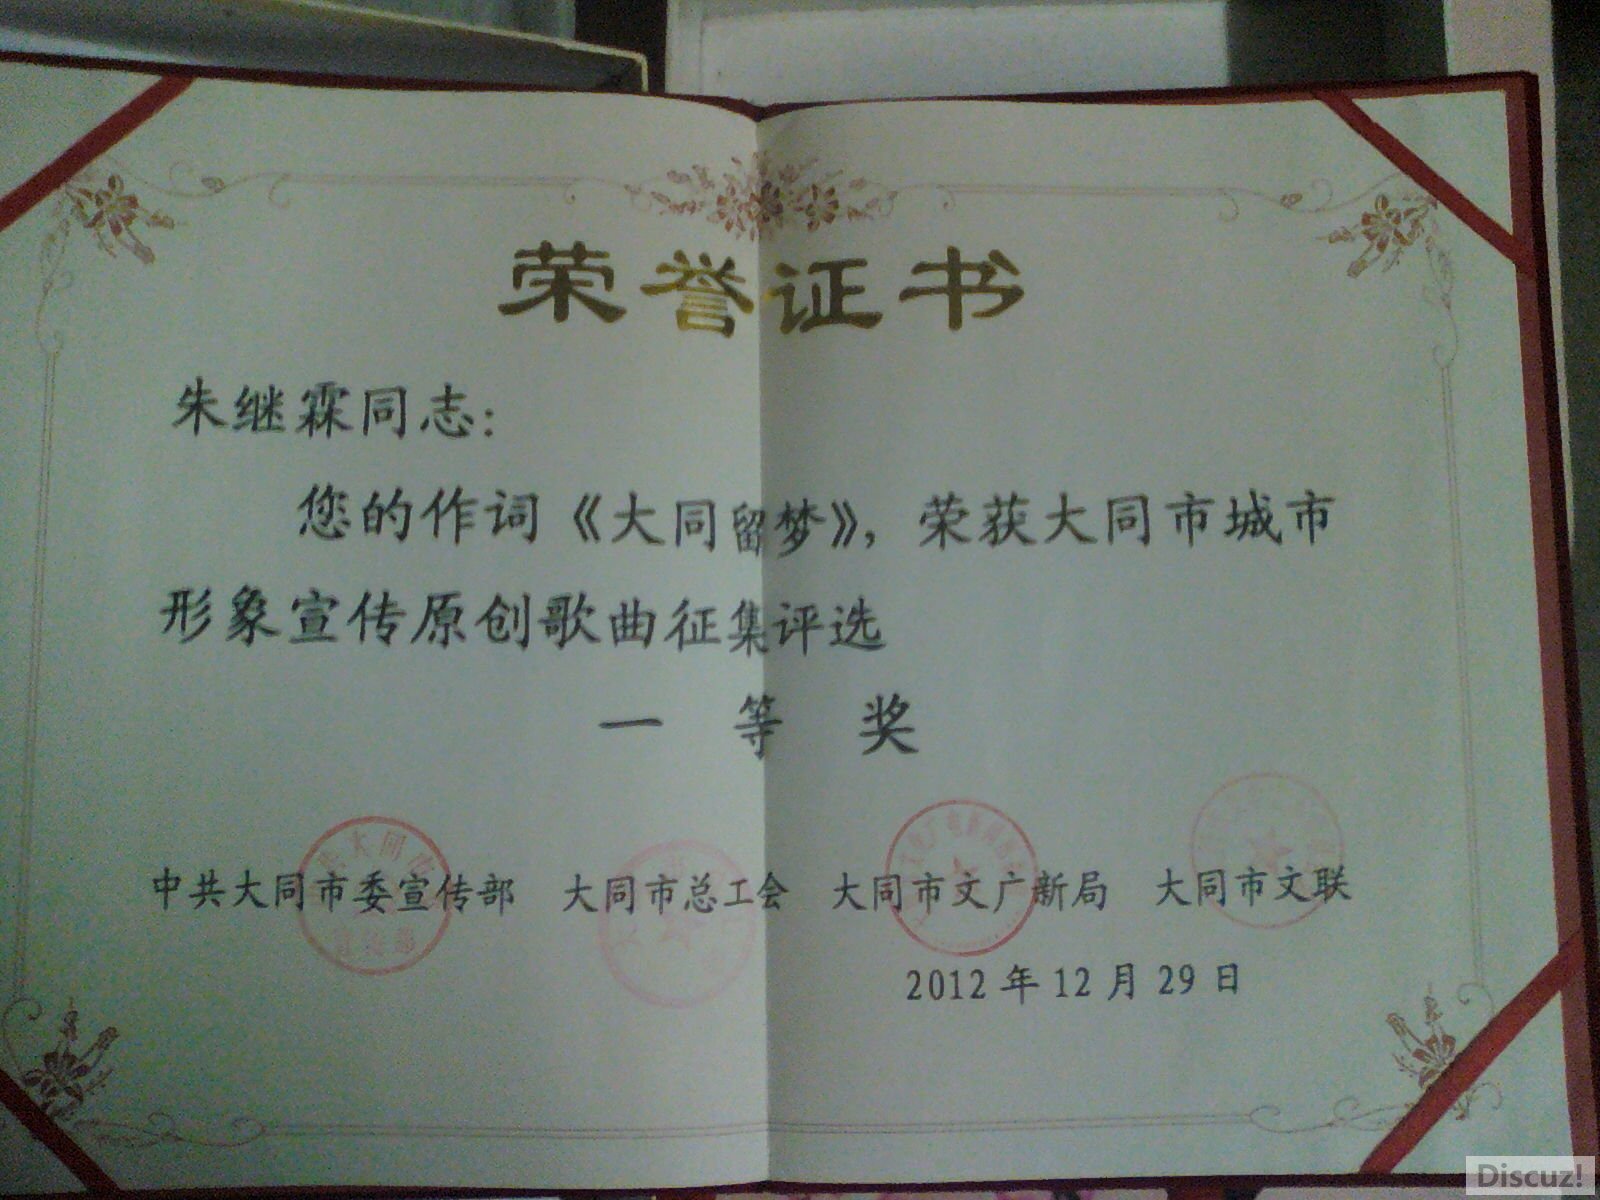 荣誉证书
朱继霖同志:
您的作词《大同留梦》，荣获大同市城市
形象宣传原创歌曲征集评选
一 等 奖
中共大同市委宣传部 大同市总工会 大同市文广新局 大同市文联
2012年12月29日
Discuz!